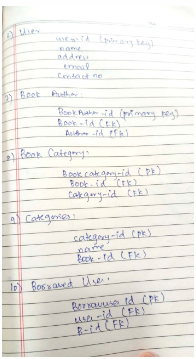 User
user-id (primary key)
name
address
email
Contact no
7) Book Author
BookAuthor-id (primary key)
Book-id (FK)
Author-id (FK)
8) Book Category:
Bookcategory-id (PK)
Book-id (FK)
Category-id (FK)
9) Categories:
category-id (PK)
name
Book-id (FK)
10) Borrowed User:
Borrowuser-id (PK)
user-id (FK)
B-id (FK)